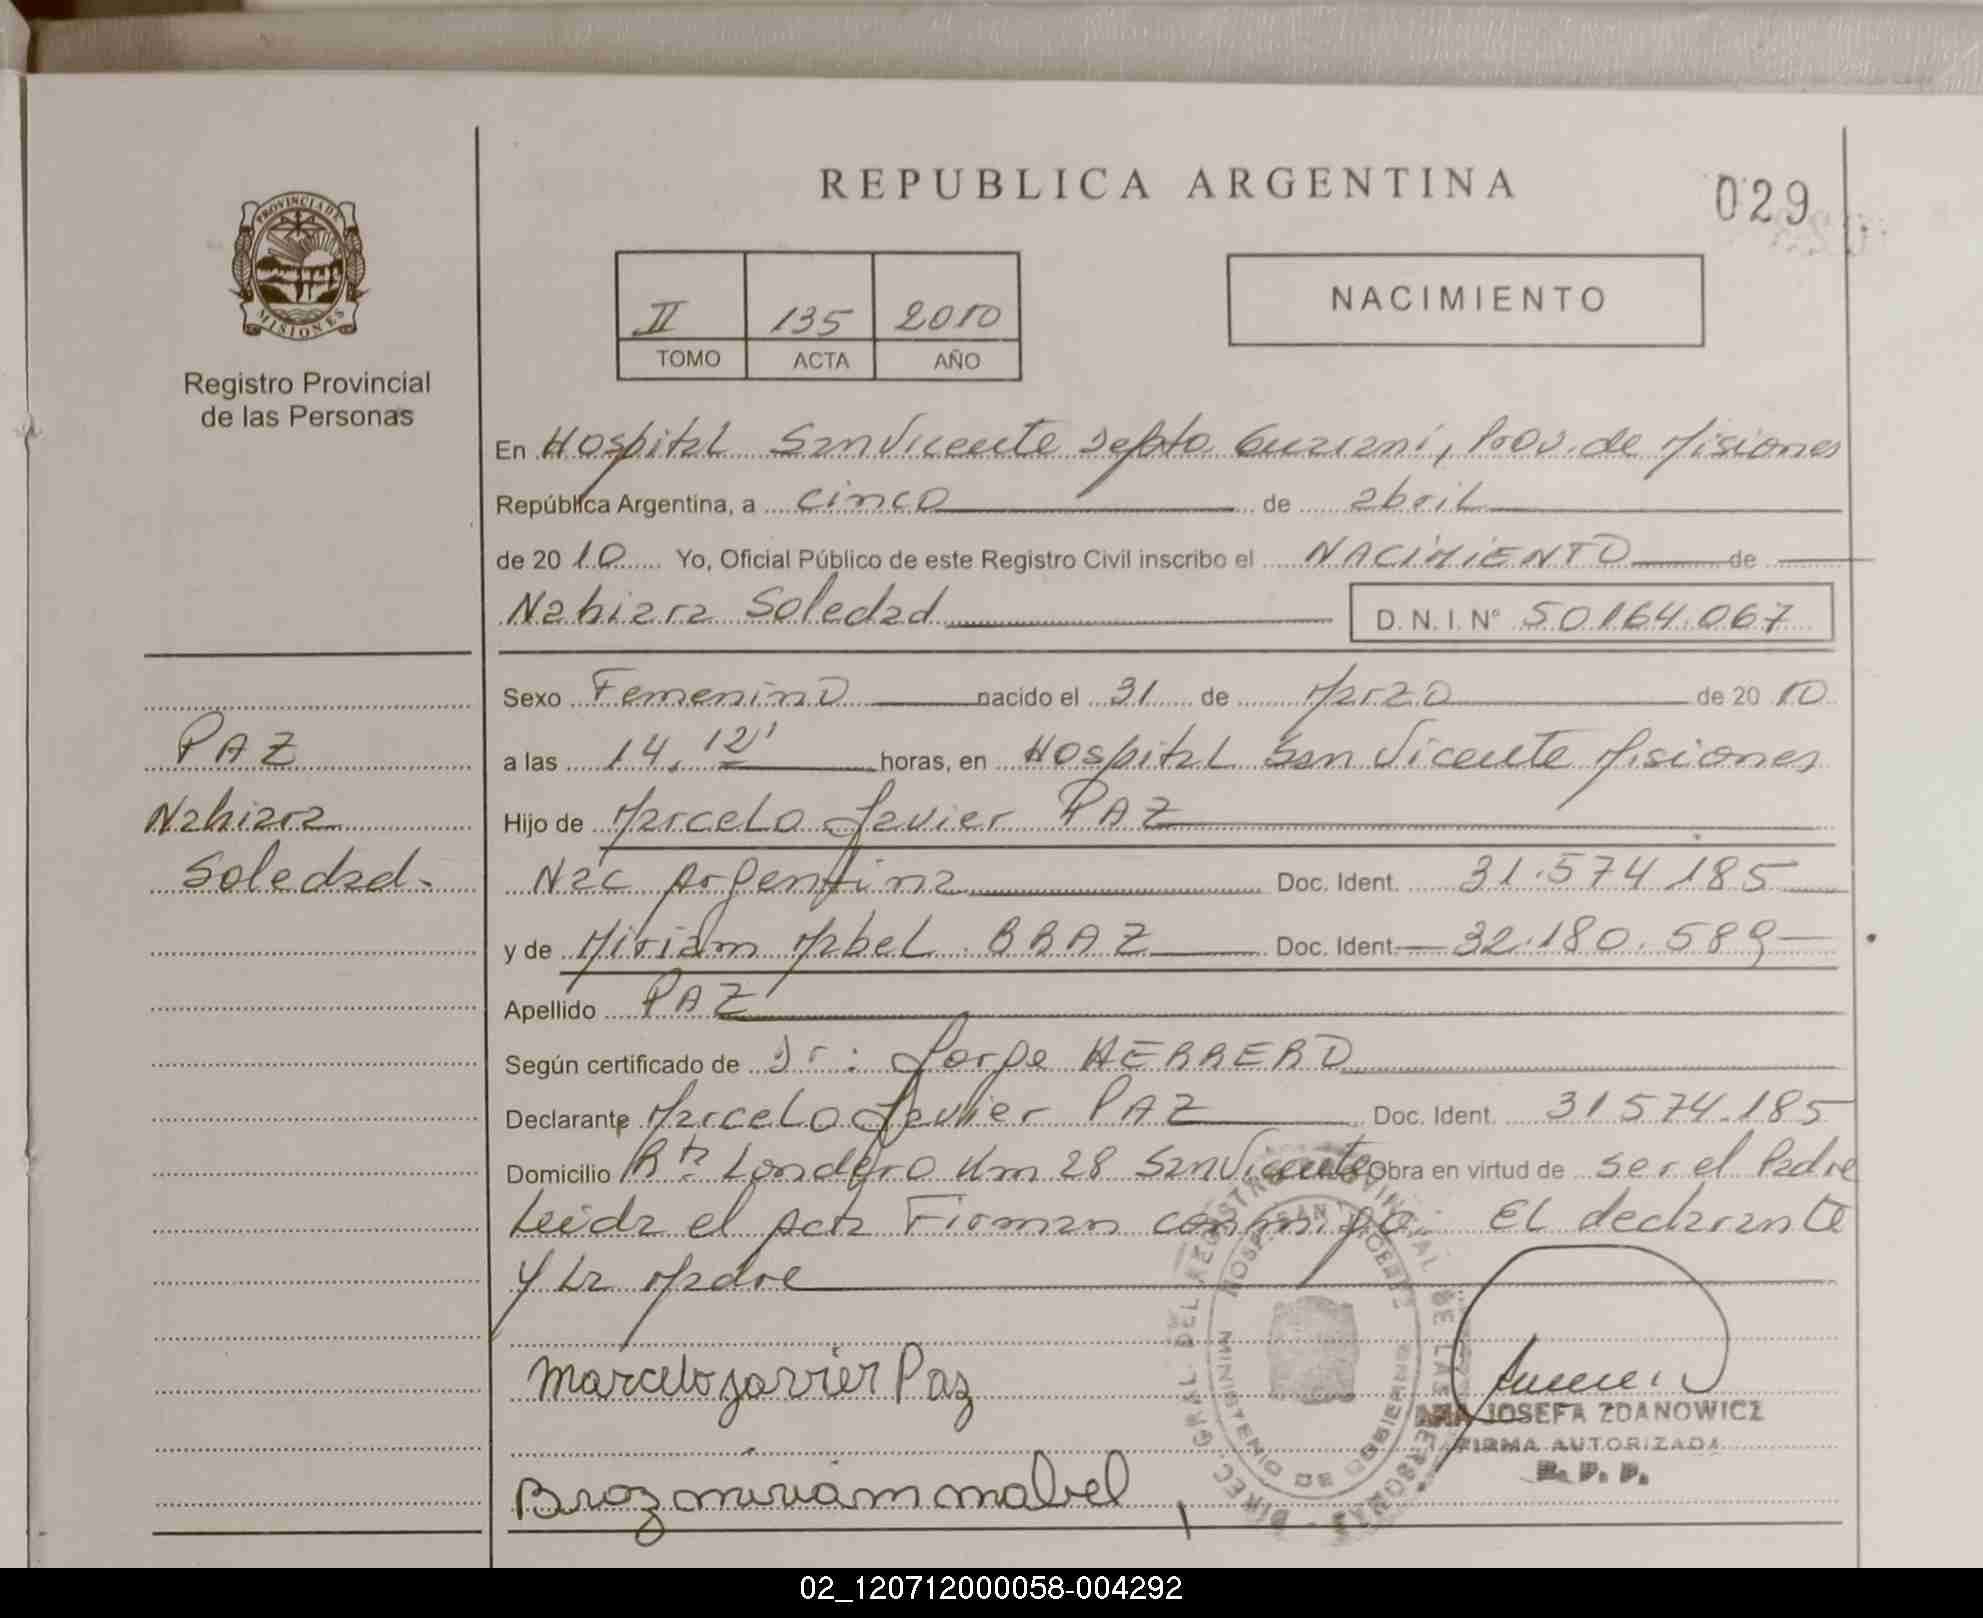 REPUBLICA ARGENTINA
029
PROVINCIA DE
MISIONES
Registro Provincial
de las Personas
II 135 2010
TOMO ACTA AÑO
NACIMIENTO
En Hospital San Vicente Depto Guarani, Prov. de Misiones
República Argentina, a cinco de abril
de 2010 Yo, Oficial Público de este Registro Civil inscribo el NACIMIENTO de
Nahiara Soledad D. N. I. Nº 50164.067
Sexo Femenino nacido el 31 de Marzo de 2010
a las 14. 12' horas, en Hospital San Vicente Misiones
Hijo de Marcelo Javier PAZ
Nac Argentina Doc. Ident. 31.574.185
y de Miriam Mabel BRAZ Doc. Ident. 32.180.589
Apellido PAZ
Según certificado de Dr: Jorge HERRERO
Declarante Marcelo Javier PAZ Doc. Ident. 31574.185
Domicilio Rta Londero Km 28 San Vicente Obra en virtud de ser el Padre
Leida el Acta Firman conmigo: El declarante
y la Madre
PAZ
Nahiara
Soledad.
Marcelo javier Paz
Braz miriam mabel
DIREC. GRAL DEL REGISTRO PROVINCIAL DE LAS PERSONAS
HOSP. SAN VICENTE
MINISTERIO DE GOBIERNO
ANA JOSEFA ZDANOWICZ
FIRMA AUTORIZADA
R. P. P.
02_120712000058-004292